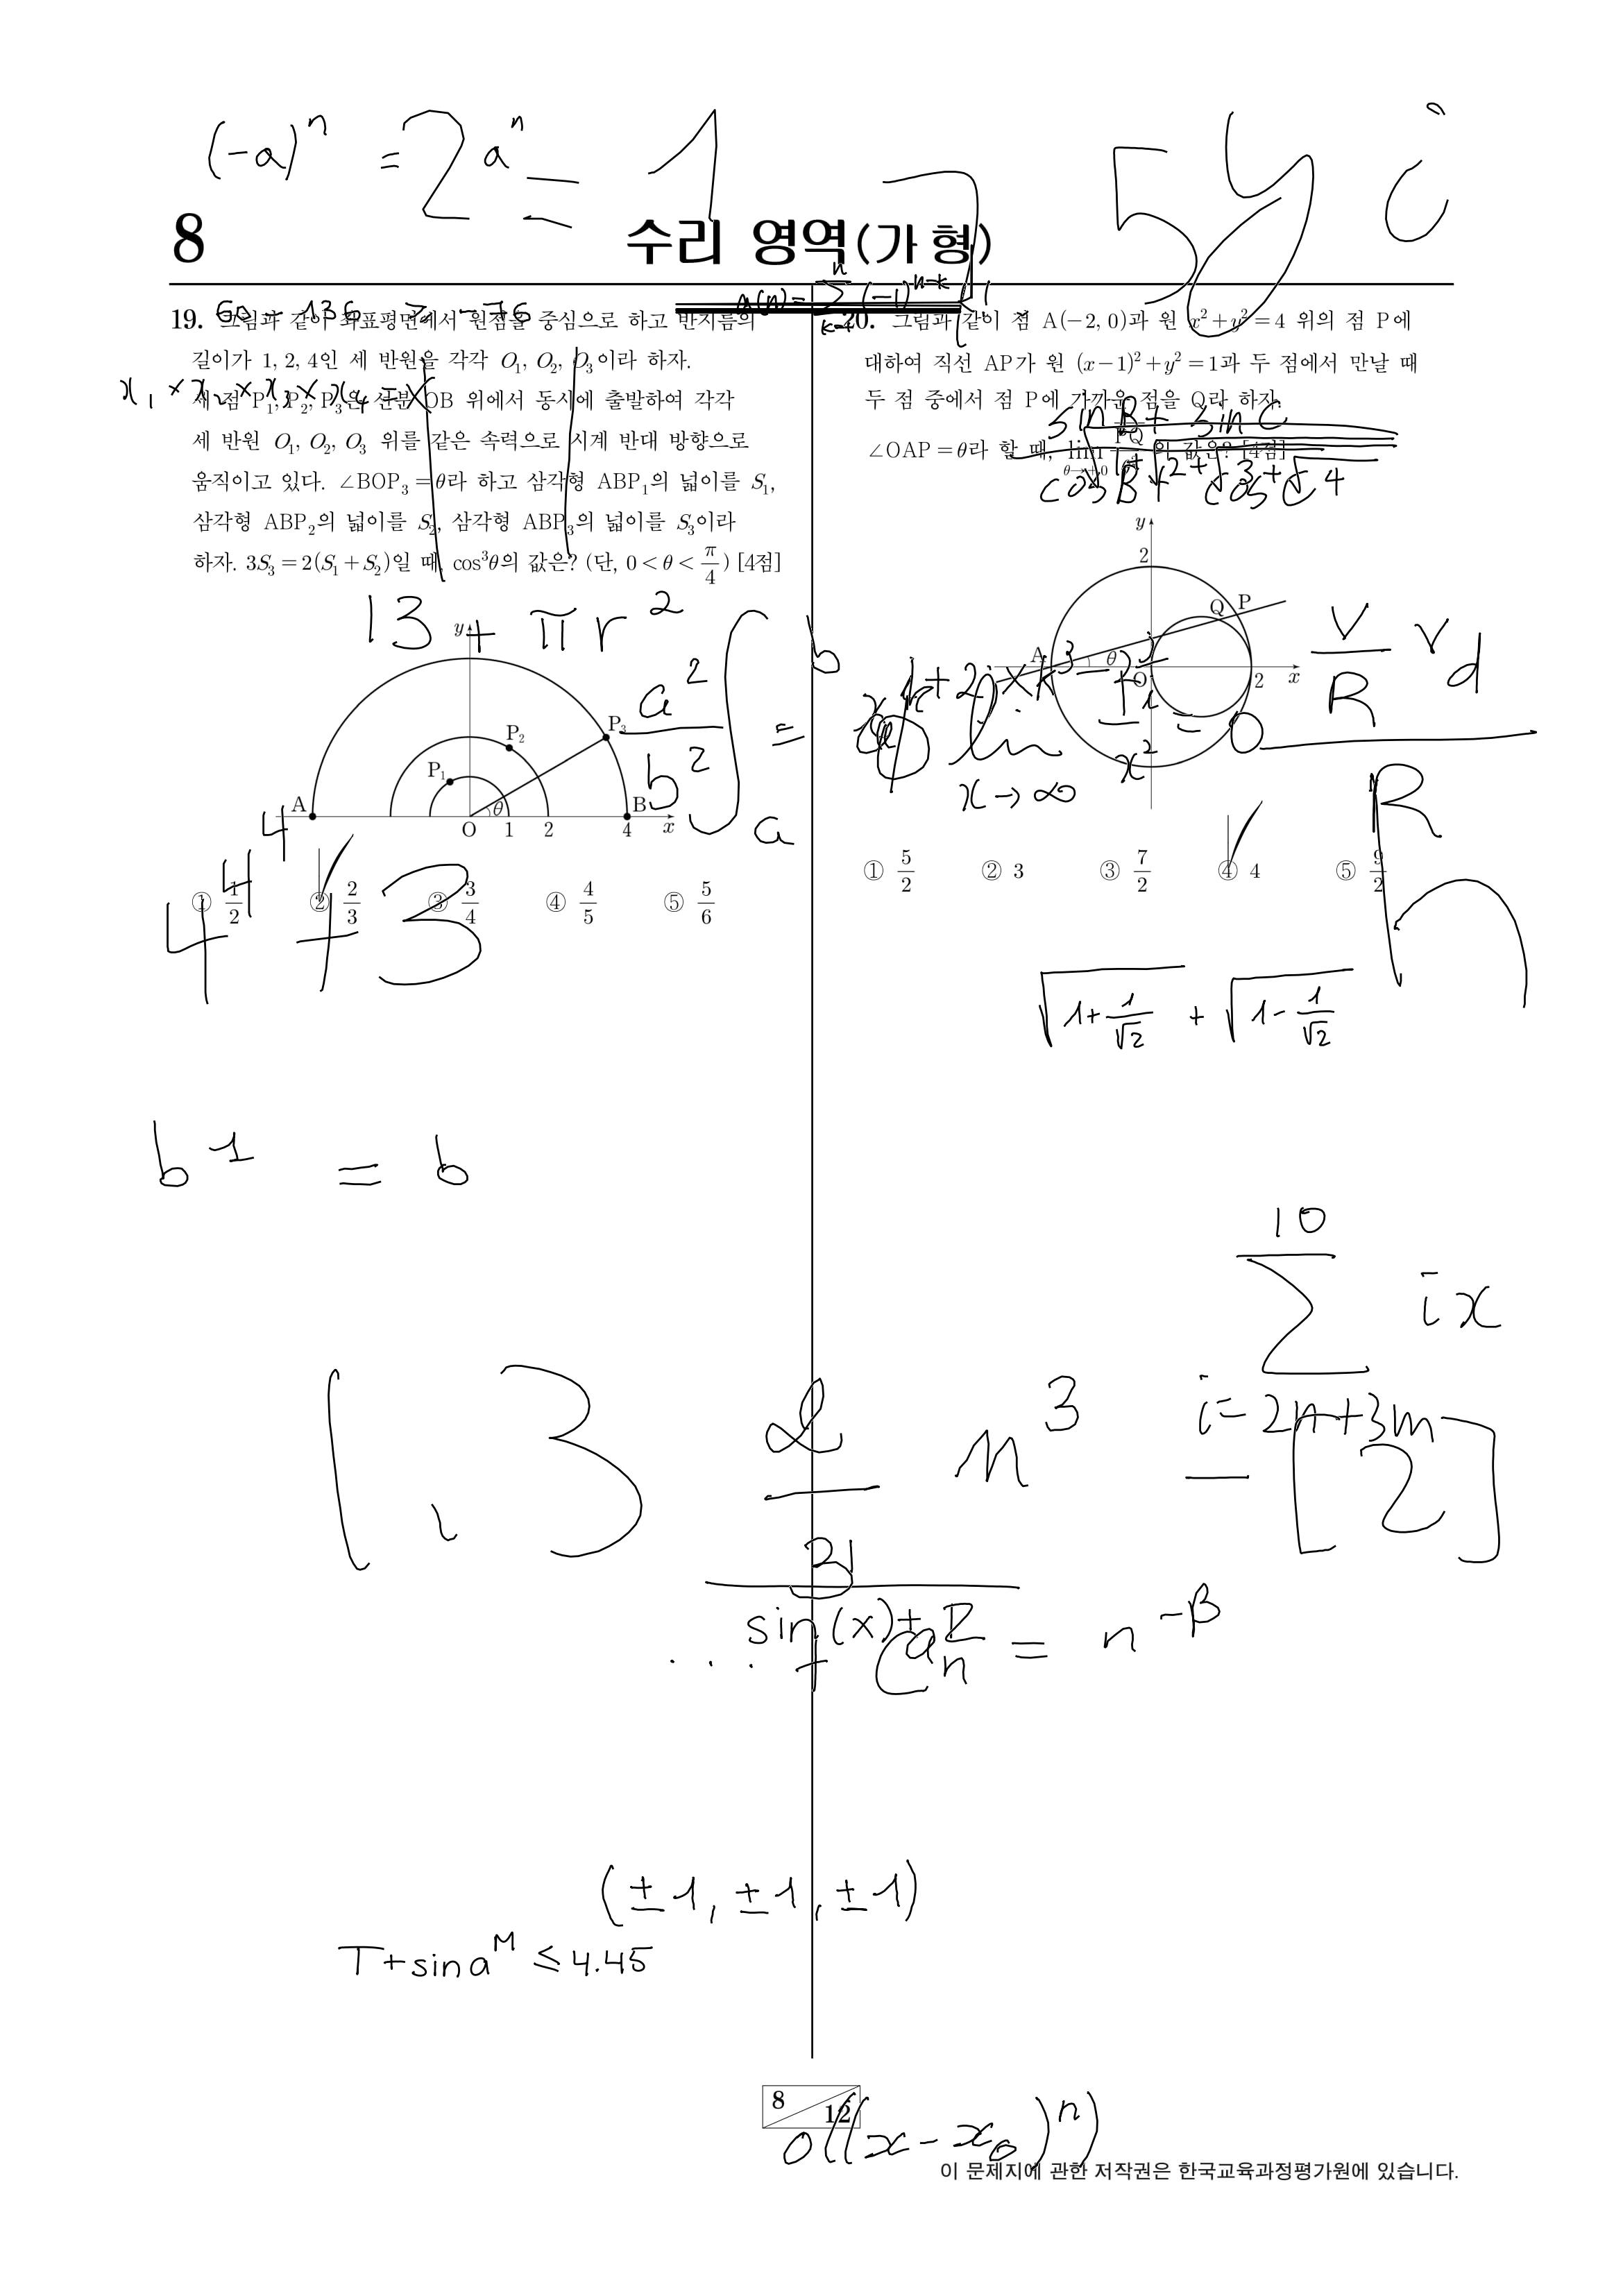 (-a)^n = 2a^n = 1 7 5y i
8
수리 영역(가 형)
60 - 136 ≥ -76
19. 그림과 같이 좌표평면에서 원점을 중심으로 하고 반지름의
길이가 1, 2, 4인 세 반원을 각각 O₁, O₂, O₃이라 하자.
세 점 P₁, P₂, P₃은 선분 OB 위에서 동시에 출발하여 각각
세 반원 O₁, O₂, O₃ 위를 같은 속력으로 시계 반대 방향으로
움직이고 있다. ∠BOP₃=θ라 하고 삼각형 ABP₁의 넓이를 S₁,
삼각형 ABP₂의 넓이를 S₂, 삼각형 ABP₃의 넓이를 S₃이라
하자. 3S₃=2(S₁+S₂)일 때, cos³θ의 값은? (단, 0<θ<π/4) [4점]
13 + πr²
a²/b²
y
P₃
P₂
P₁
A
θ
B
O 1 2 4 x
① 1/2 ② 2/3 ③ 3/4 ④ 4/5 ⑤ 5/6
4 4 4 + 3
b¹ = b
20. 그림과 같이 점 A(-2, 0)과 원 x²+y²=4 위의 점 P에
대하여 직선 AP가 원 (x-1)²+y²=1과 두 점에서 만날 때
두 점 중에서 점 P에 가까운 점을 Q라 하자.
∠OAP=θ라 할 때, lim θ→+0 의 값은? [4점]
sin B + sin C
cos B + cos C
y
2
Q P
A
θ
O
2 x
lim x→∞
= 0
① 5/2 ② 3 ③ 7/2 ④ 4 ⑤ 9/2
√(1+1/√2) + √(1-1/√2)
∑ i=2n+3m 10 ix
n³ - [2]
sin(x)+
= n^-β
(±1, ±1, ±1)
T+sin a^M ≤ 4.45
8
12
o((x-x₀)^n)
이 문제지에 관한 저작권은 한국교육과정평가원에 있습니다.